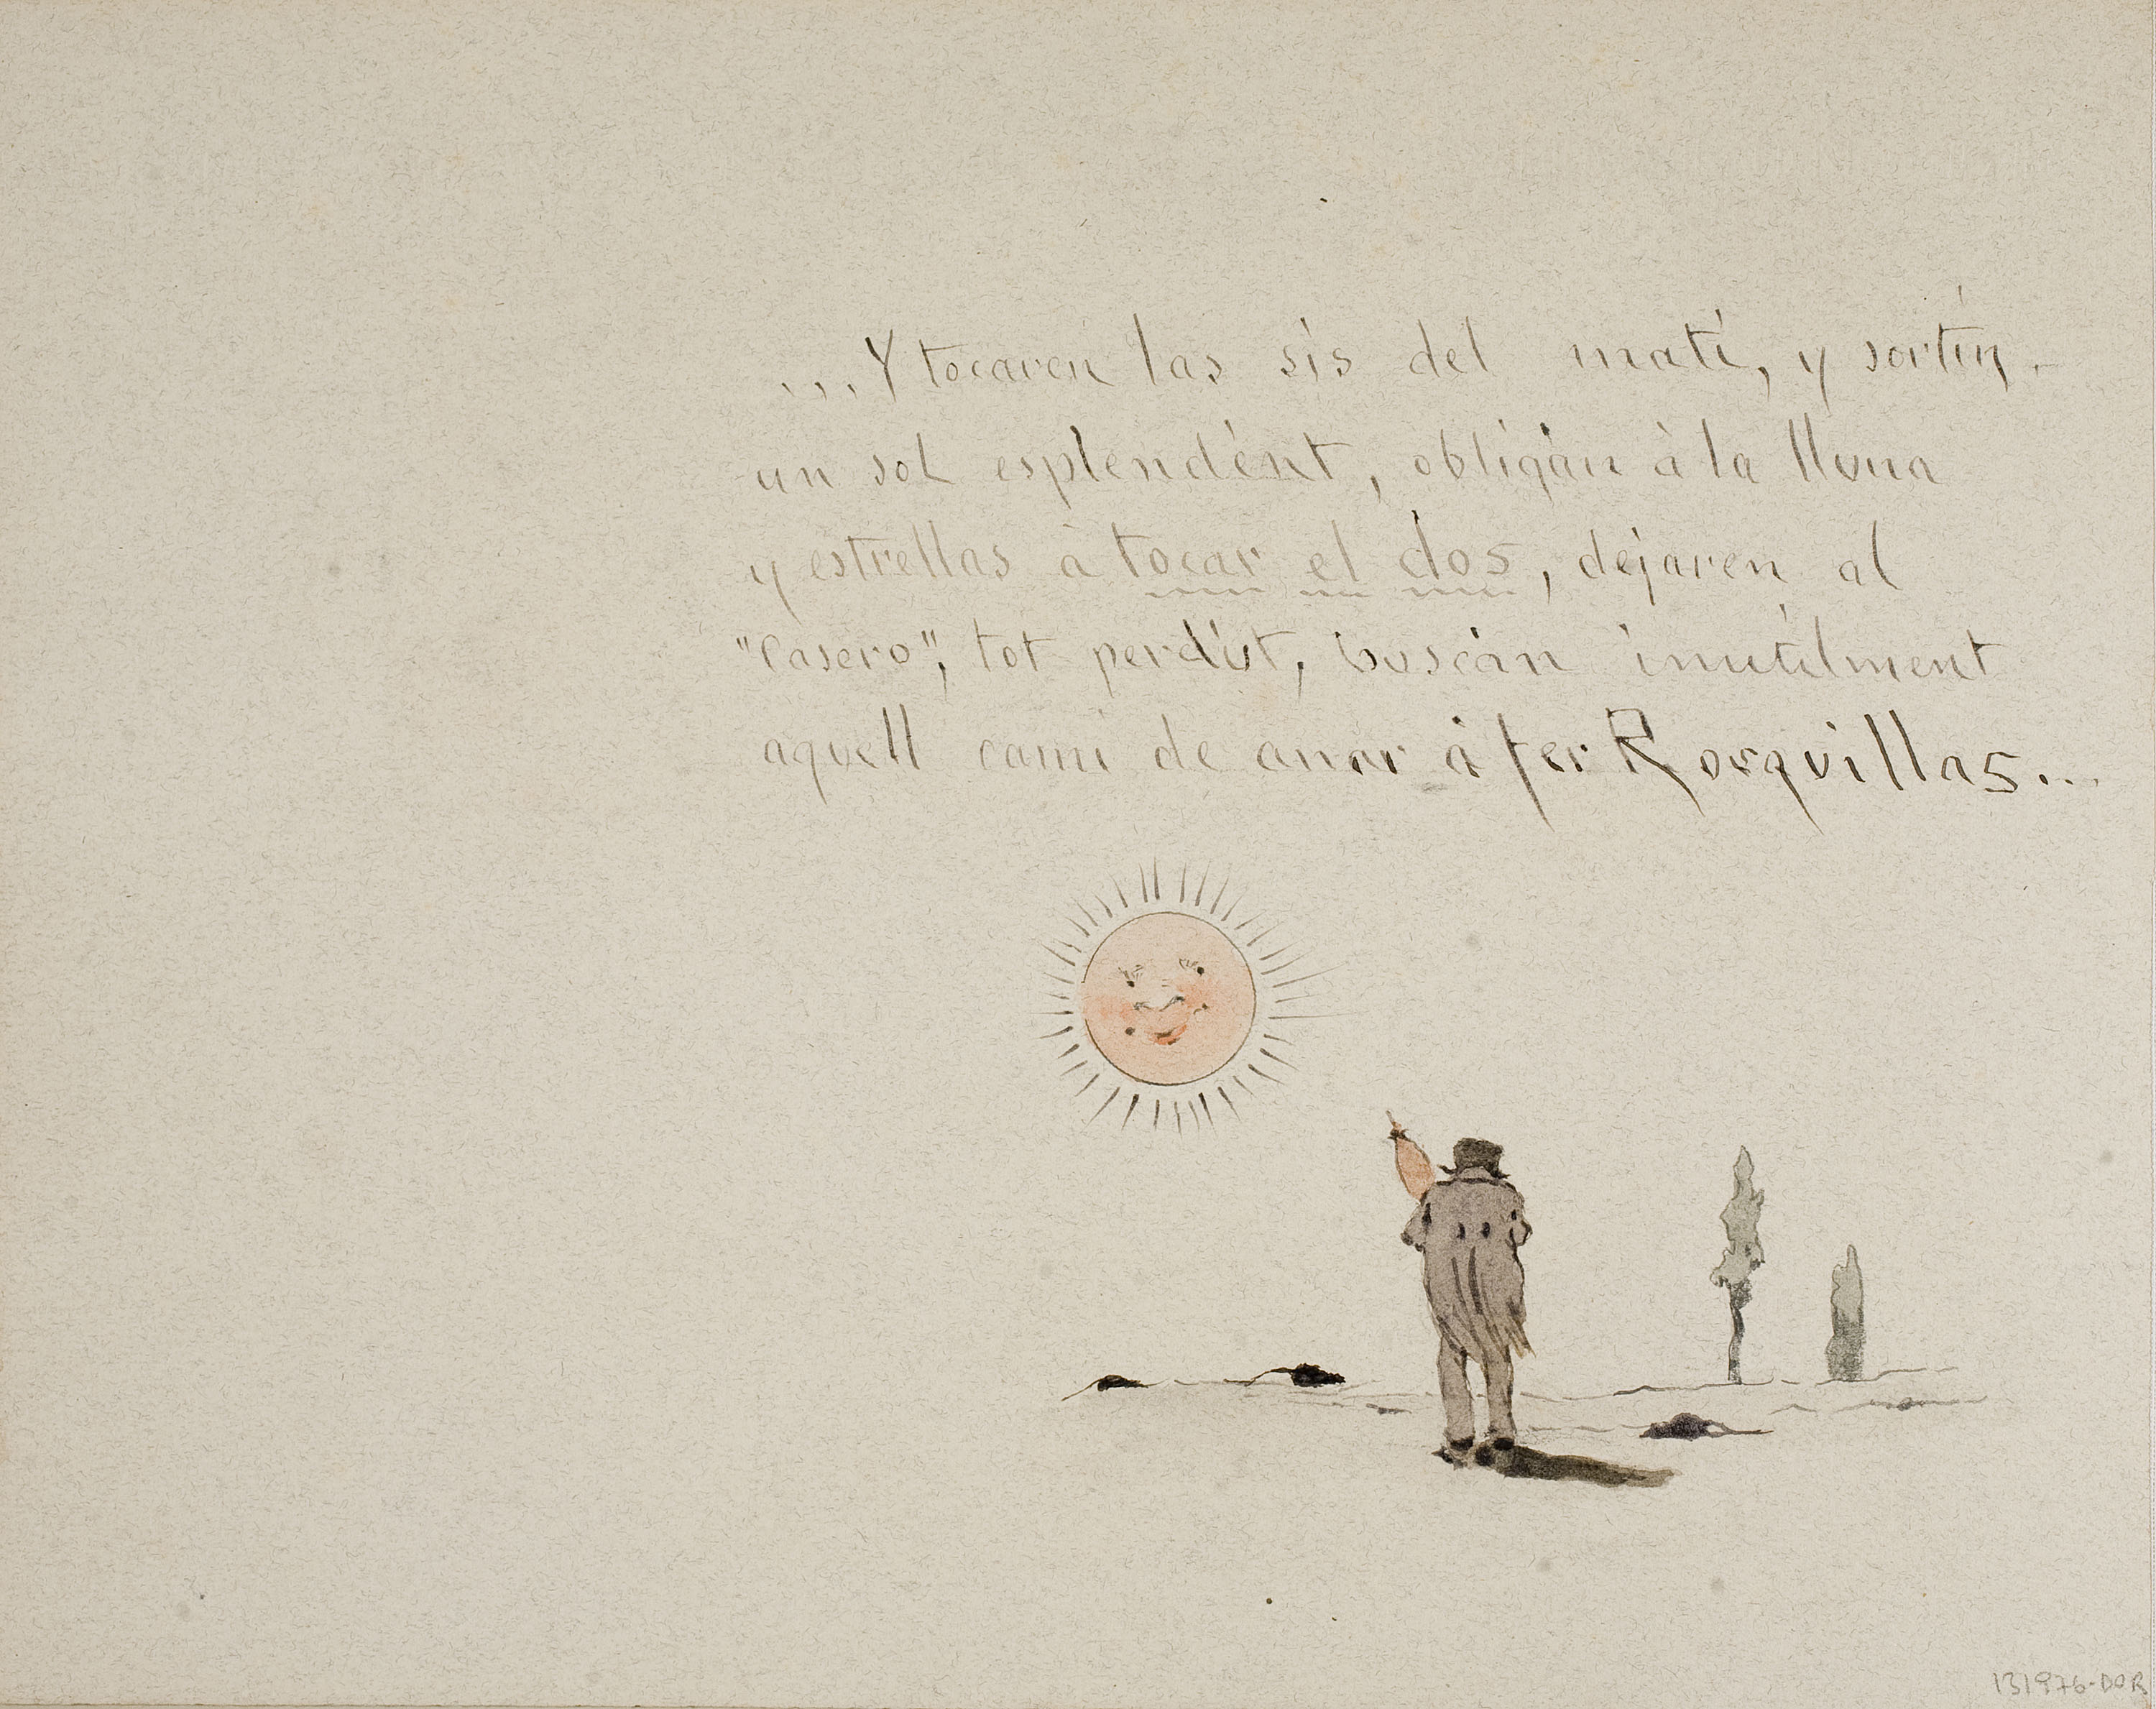 ...Y tocaren las sis del matí, y sortín
un sol esplendént, obligán à la lluna
y estrellas à tocar el dos, dejaren al
"Casero", tot perdut, buscán inutilment
aquell camí de anar à fer Rosquillas...
131976-DOR